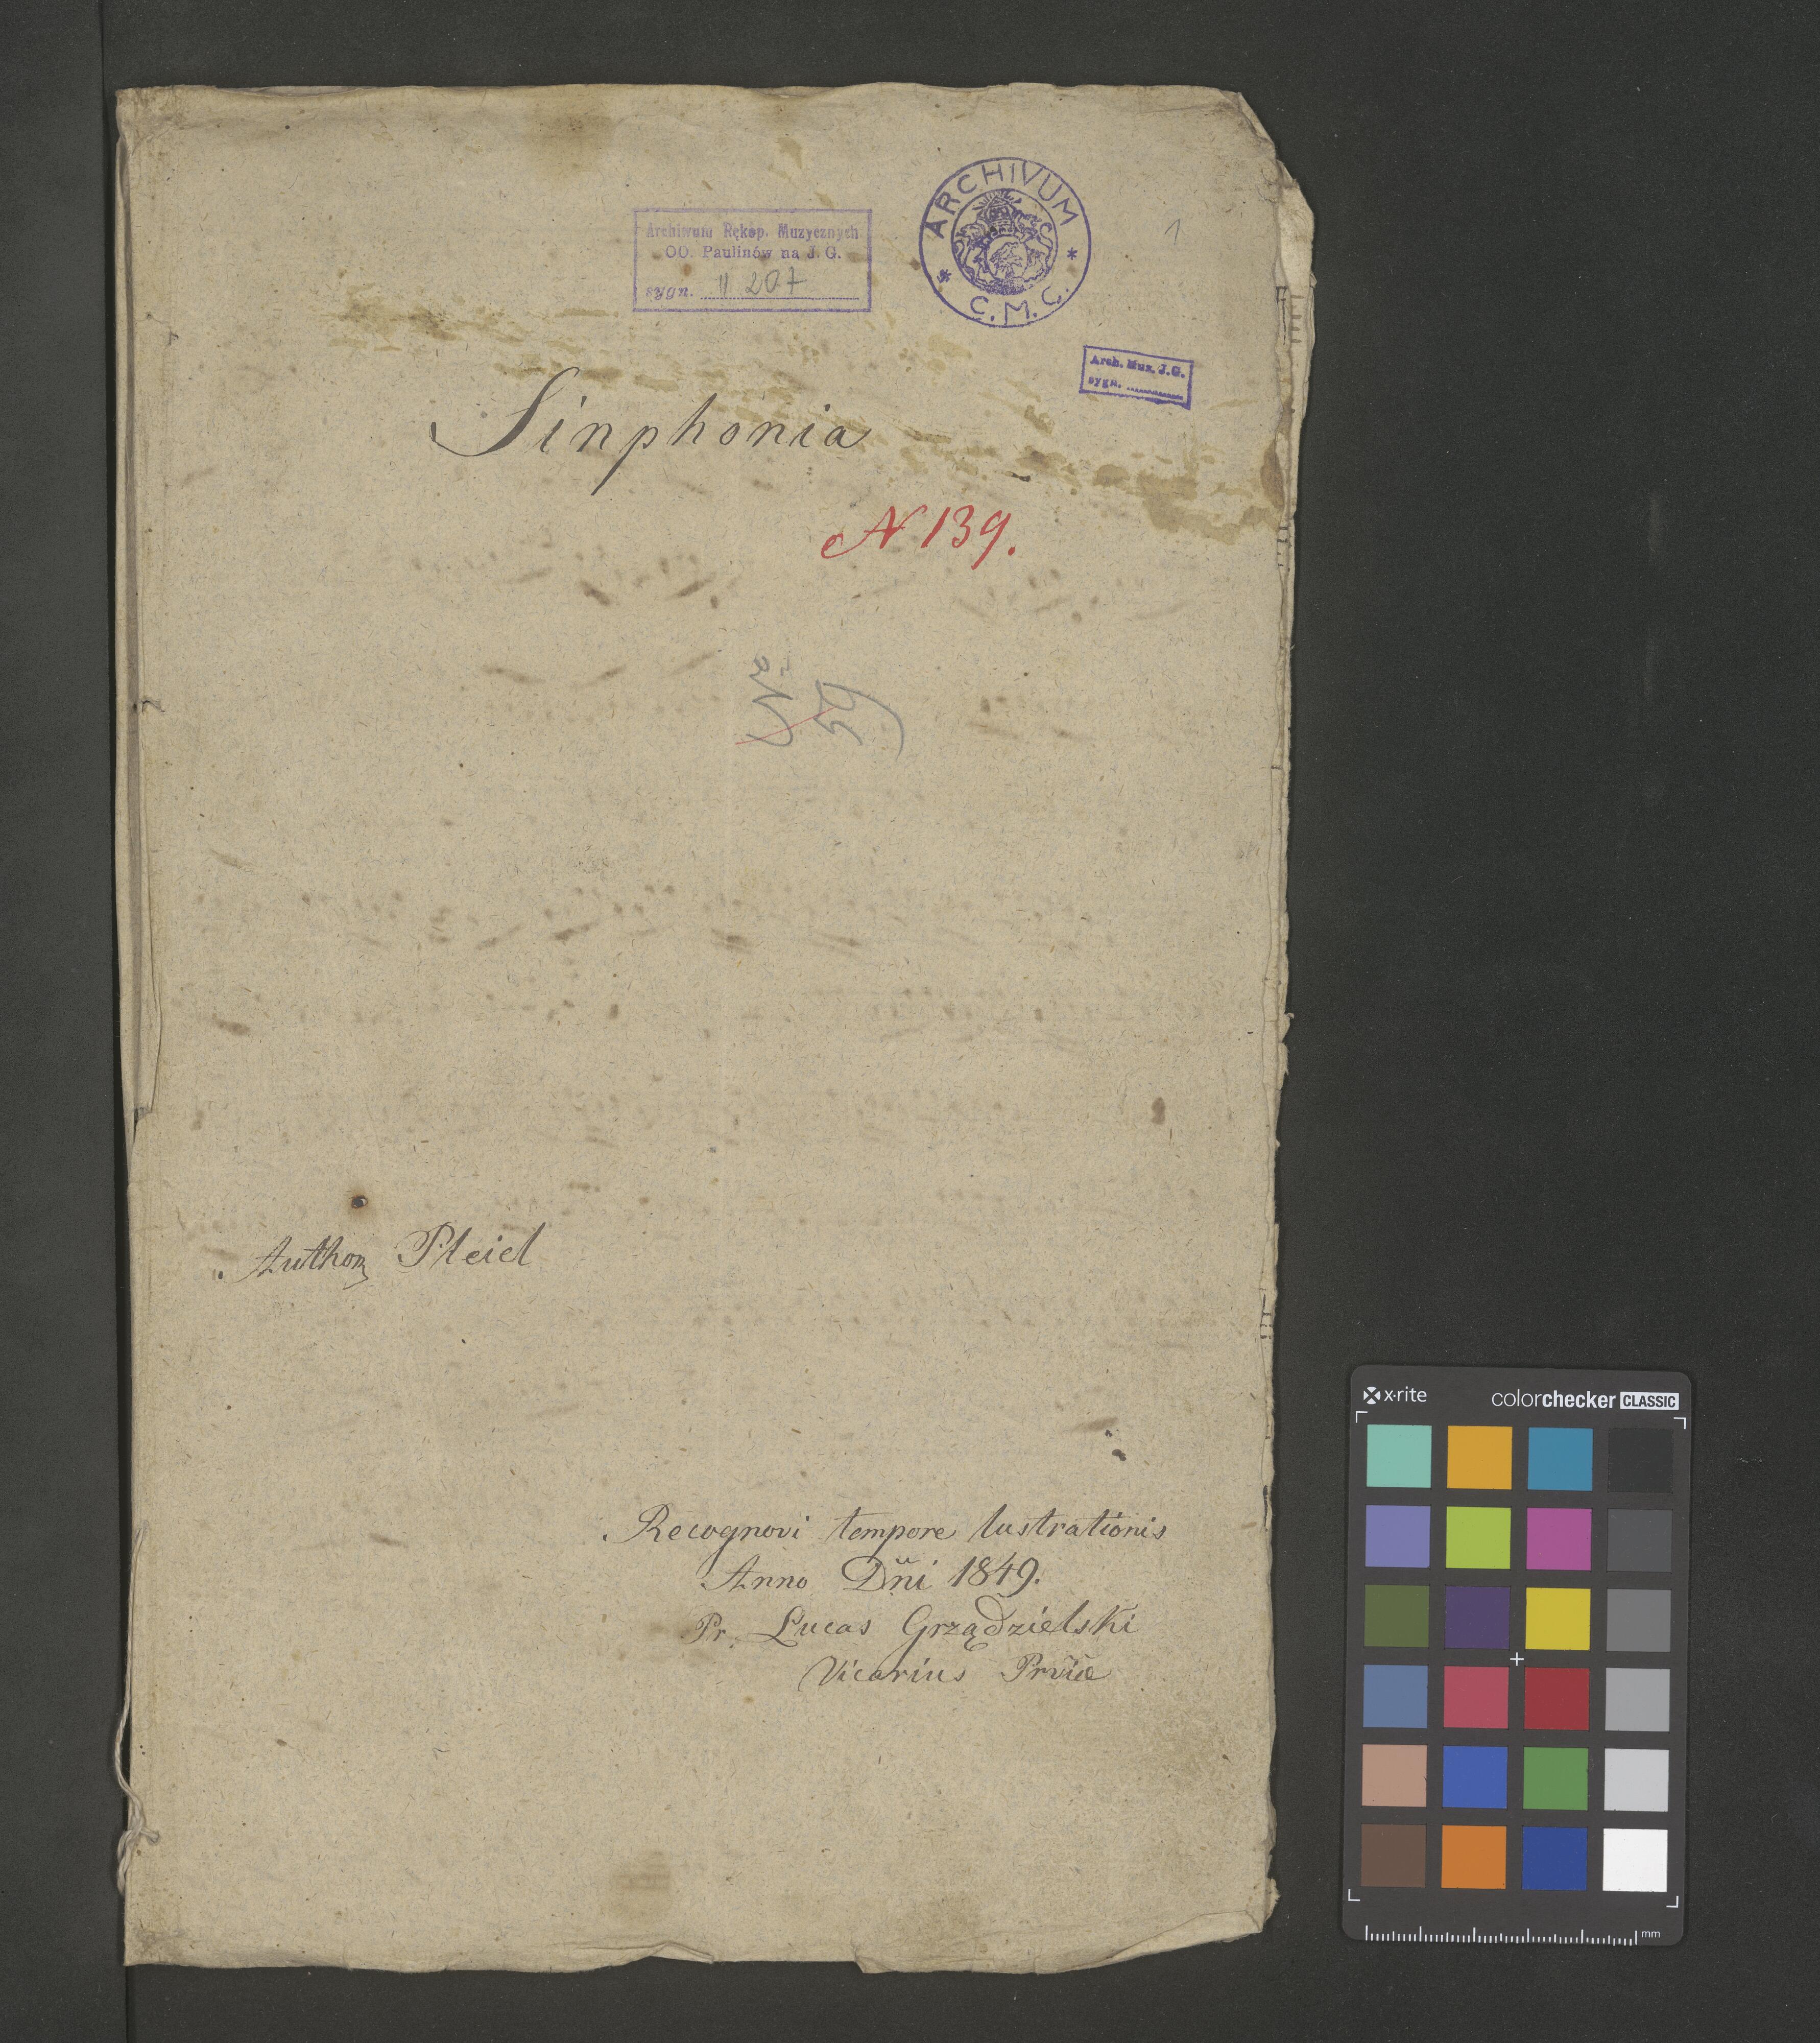 Archiwum Rękop. Muzycznych
OO. Paulinów na J. G.
sygn. II 207
ARCHIVUM
* C.M.C. *
1
Arch. Muz. J.G.
sygn. ............
Sinphonia
N 139.
Pleiel
Recognovi tempore lustrationis
Anno Dñi 1849.
Pr. Lucas Grządzielski
Vicarius Prviæ
x·rite
colorchecker CLASSIC
mm